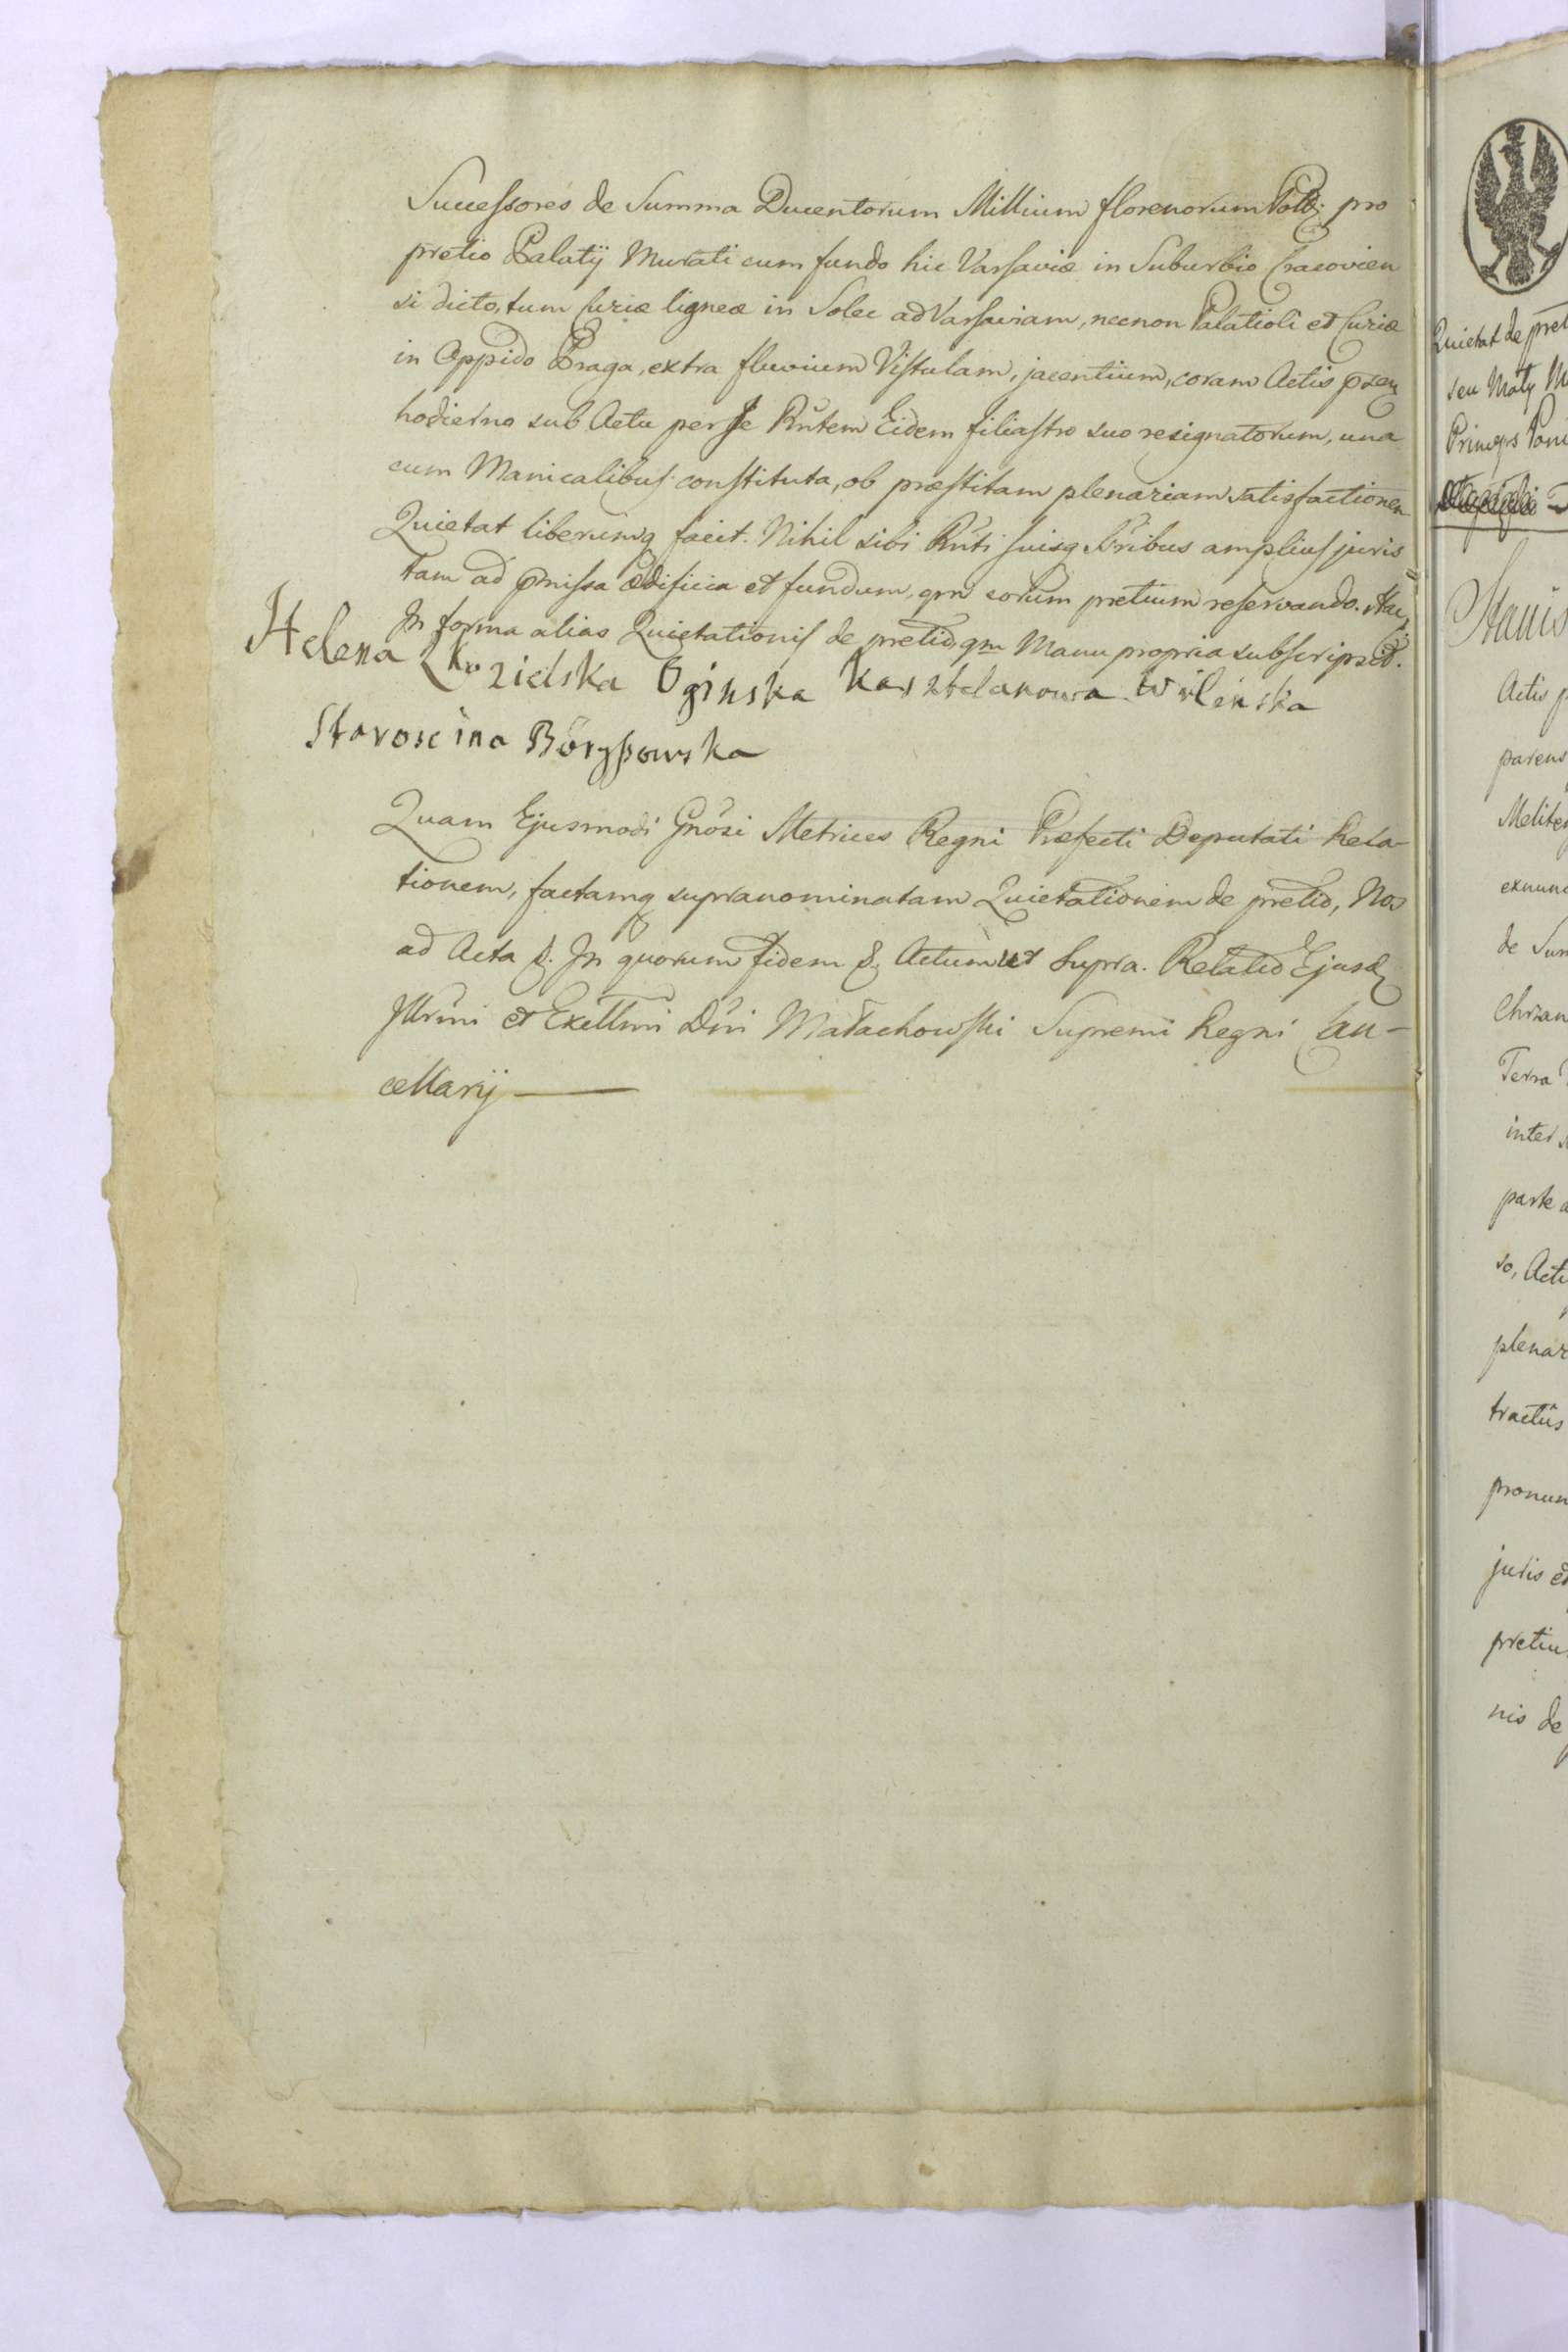 Successores de Summa Ducentorum Millium florenorum Pollg pro
pretio Palatij Murati cum fundo hic Varsaviæ in Suburbio Cracovien
si dicto, tum Curiæ ligneæ in Solec ad Varsaviam, necnon Palatioli et Curiæ
in Oppido Praga, extra fluvium Vistulam, jacentium, coram Actis pñ
hodierno sub Actu per Se Rñtem Eidem filiastro suo resignatorum, una
cum Manicalibus constituta, ob præstitam plenariam satisfactionem
Quietat liberumq facit. Nihil sibi Rñti suisq Sribus amplius juris
tam ad pmissa ædificia et fundum, qm eorum pretium reservando. Hac
In forma alias Quietationis de pretio, qm Manu propria subscripsit.
Helena Z Kozielska Oginska Kasztelanowa Wilenska
Staroscina Böryssowska
Quam Ejusmodi Gnosi Metrices Regni Præfecti Deputati Rela-
tionem, factamq supranominatam Quietationem de pretio, Nos
ad Acta &. In quorum fidem &. Actum ut Supra. Relatio Ejusd
Illrmi et Excllmi Dni Małachowski Supremi Regni Can-
cellarij
Quietat de pret
seu
Princeps Poni
Stanis
Actis p
parens
exnunc
de Sum
Terra
inter
parte a
so, Actu
plenar
tractus
pronun
juris et
pretiu
nis de